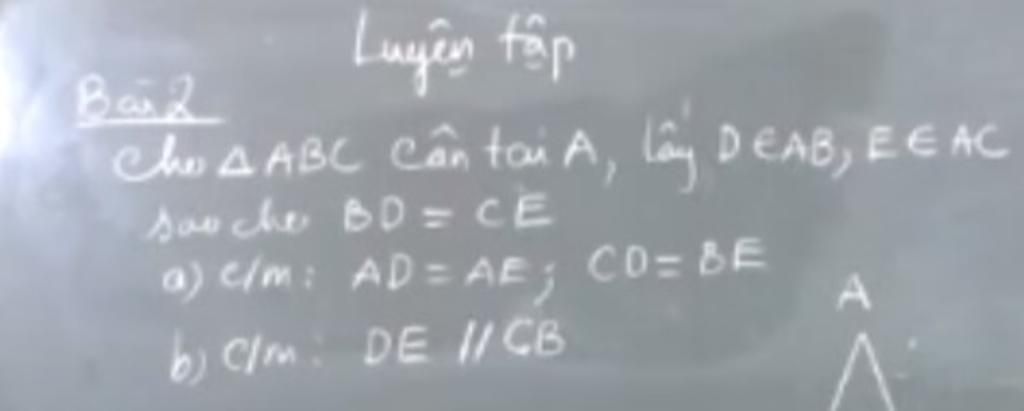 Luyện tập
Bài 2
Cho △ ABC cân tại A, lấy D ∈ AB, E ∈ AC
sao cho BD = CE
a) c/m: AD = AE; CD = BE
b) C/m: DE // CB
A